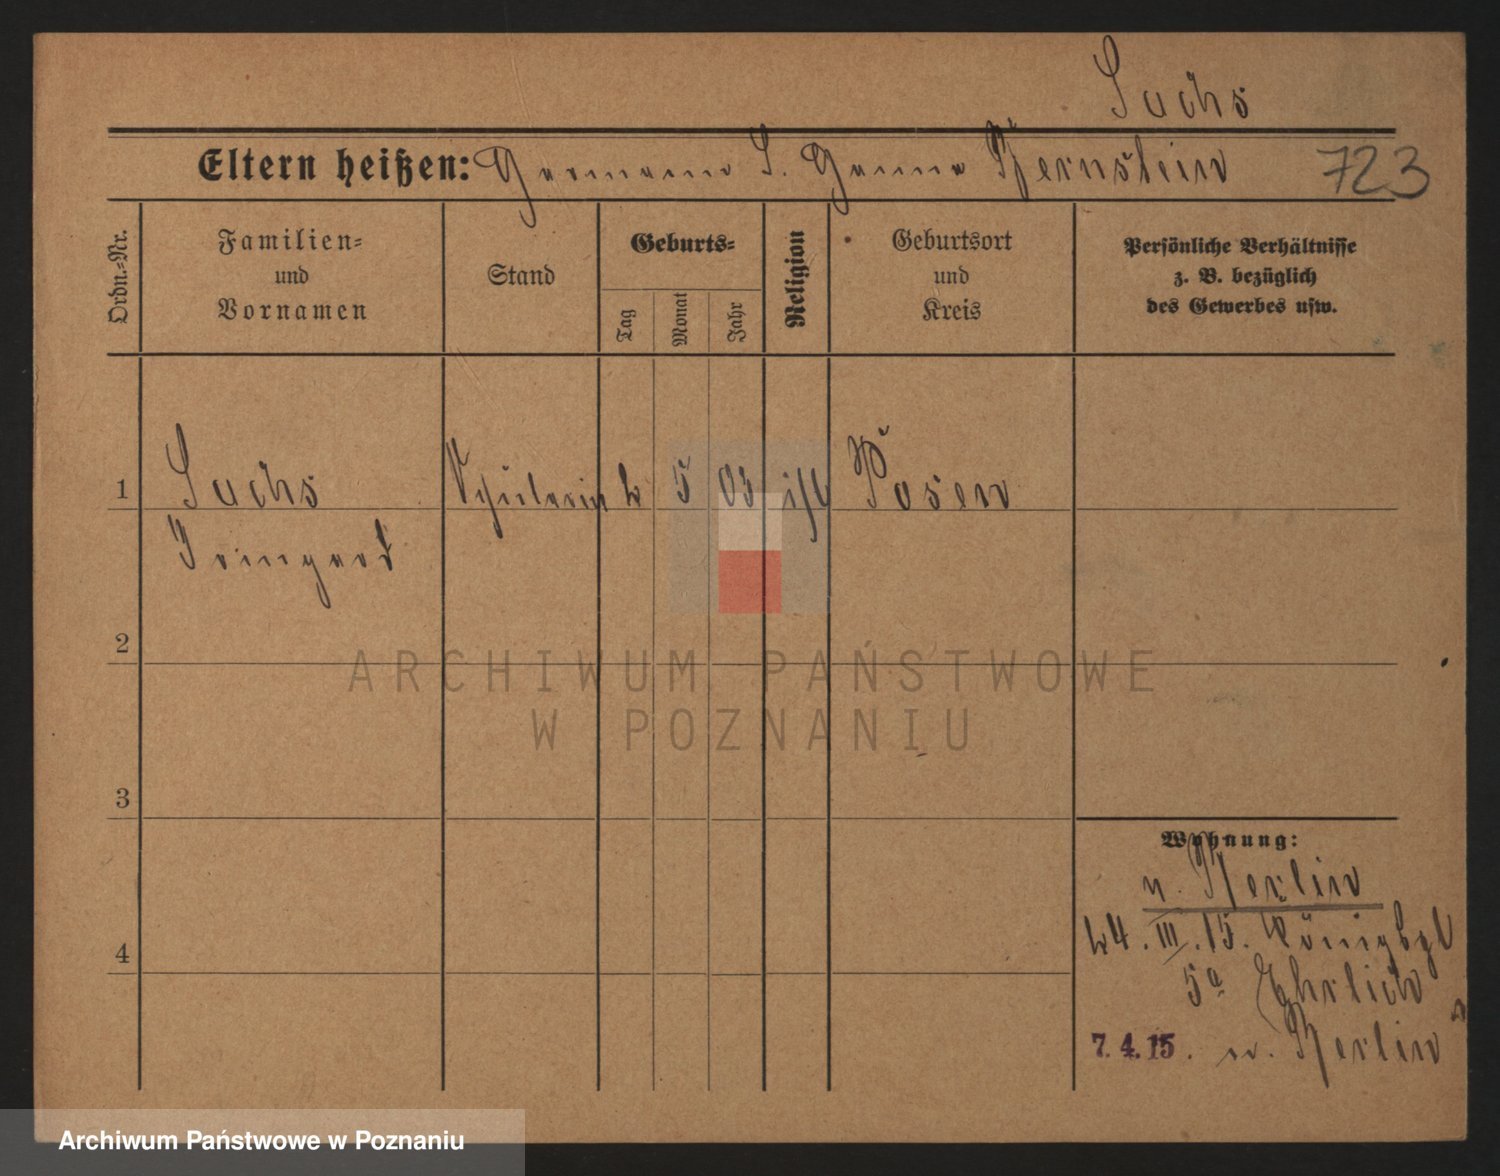 Sachs
Eltern heißen: Hermann S. Hanna Bernstein 723
Ordn.=Nr.
Familien=
und
Vornamen
Stand
Geburts=
Tag
Monat
Jahr
Religion
Geburtsort
und
Kreis
Persönliche Verhältnisse
z. B. bezüglich
des Gewerbes usw.
1 Sachs Schülerin 2 5 03 isr Posen
Irmgard
2
3
4
Wohnung:
n. Berlin
24. III. 15. Königspl
5a Ehrlich
7. 4. 15. n. Berlin
ARCHIWUM PAŃSTWOWE
W POZNANIU
Archiwum Państwowe w Poznaniu